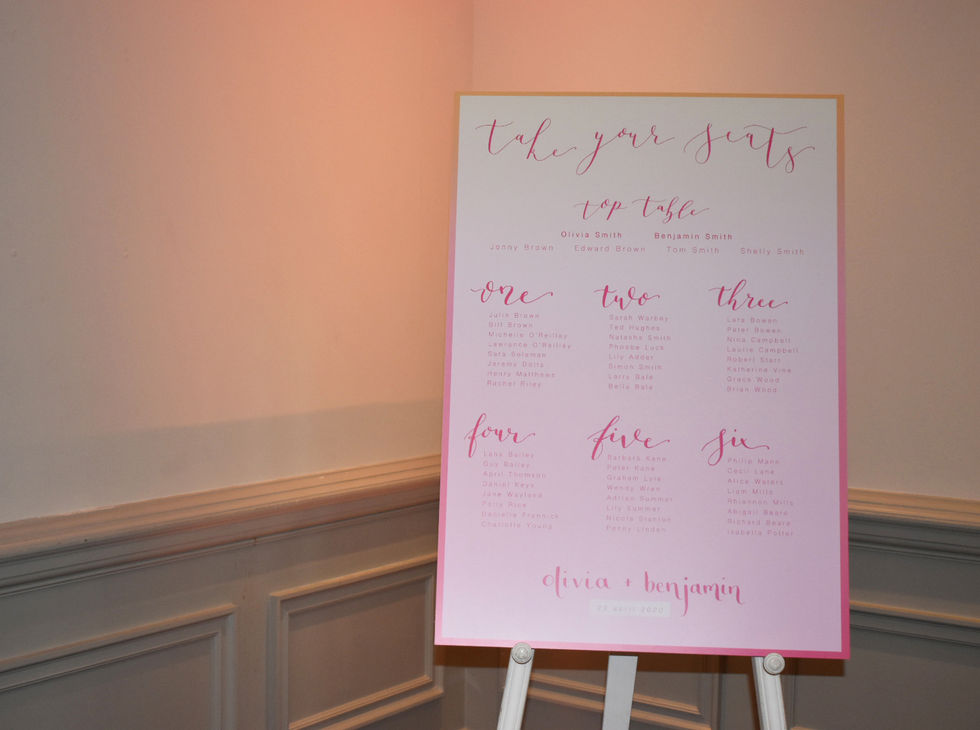 take your seats
top table
Olivia Smith Benjamin Smith
Jonny Brown Edward Brown Tom Smith Shelly Smith
one
Julin Brown
Bill Brown
Michelle O'Reilley
Lawrance O'Reilley
Sara Soloman
Jeremy Dotts
Henry Matthews
Rachel Riley
two
Sarah Warbey
Ted Hughes
Natasha Smith
Phoebe Luck
Lily Adder
Simon Smith
Larry Bale
Bella Bale
three
Lara Bowen
Peter Bowen
Nina Campbell
Laurie Campbell
Robert Starr
Katherine Vine
Grace Wood
Brian Wood
four
Lana Bailey
Guy Bailey
April Thomson
Daniel Keys
Jane Wayland
Polly Rice
Danielle Frannick
Charlotte Young
five
Barbara Kane
Peter Kane
Graham Lyle
Wendy Wren
Adrian Summer
Lily Summer
Nicola Stanton
Penny Linden
six
Philip Mann
Cecil Lane
Alice Waters
Liam Mills
Rhiannon Mills
Abigail Beare
Richard Beare
Isabella Potter
olivia + benjamin
april 2020